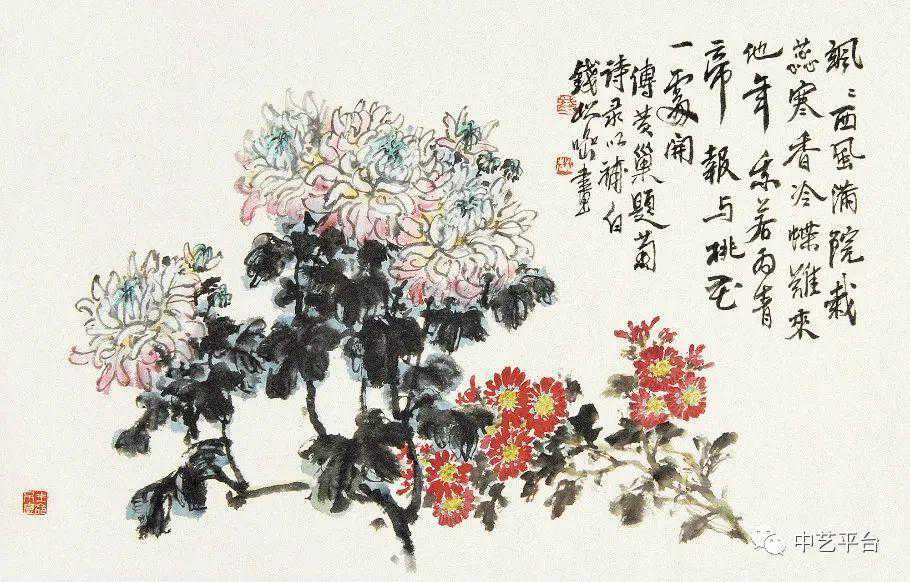 颯〻西風满院栽
蕊寒香冷蝶難來
他年我若为青
帝報与桃花
一處開
傳黄巢題菊
诗录以補白
錢松喦畫
中艺平台